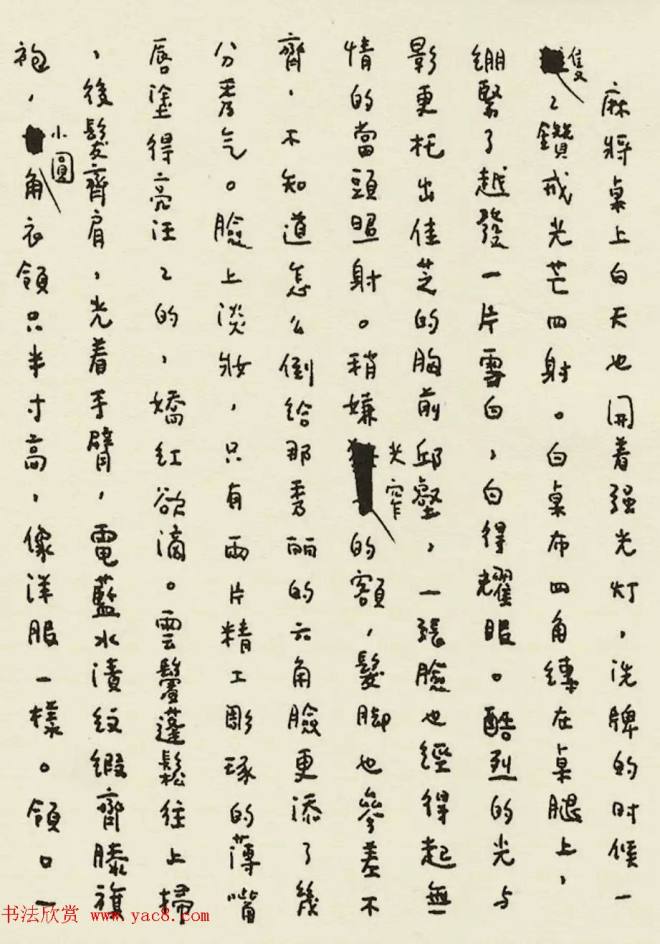 麻將桌上白天也開着强光灯，洗牌的时候一
隻〻鑽戒光芒四射。白桌布四角縛在桌腿上，
绷緊了越發一片雪白，白得耀眼。酷烈的光与
影更托出佳芝的胸前邱壑，一張臉也經得起無
情的當頭照射。稍嫌尖窄的額，髮脚也參差不
齊，不知道怎么倒給那秀丽的六角臉更添了幾
分秀气。臉上淡妝，只有兩片精工彫琢的薄嘴
唇塗得亮汪〻的，嬌红欲滴。雲鬢蓬鬆往上掃
，後髮齊肩，光着手臂，電藍水漬纹緞齊膝旗
袍，小圓角衣領只半寸高，像洋服一樣。領口一
书法欣赏 www.yac8.com